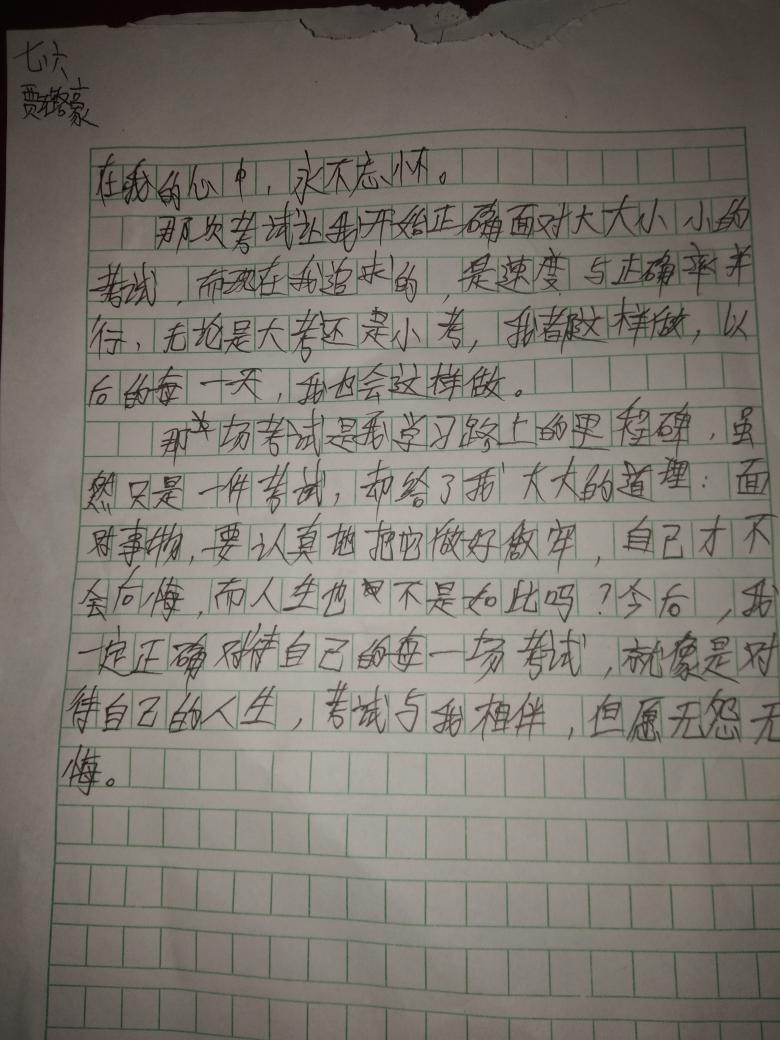 七六
贾豪
在我的心中，永不忘怀。
那次考试让我开始正确面对大大小小的
考试，而现在我追求的，是速度与正确率并
行，无论是大考还是小考，我都这样做，以
后的每一天，我也会这样做。
那场考试是我学习路上的里程碑，虽
然只是一件考试，却给了我大大的道理：面
对事物，要认真地把它做好做牢，自己才不
会后悔，而人生也不是如此吗？今后，我
一定正确对待自己的每一场考试，就像是对
待自己的人生，考试与我相伴，但愿无怨无
悔。